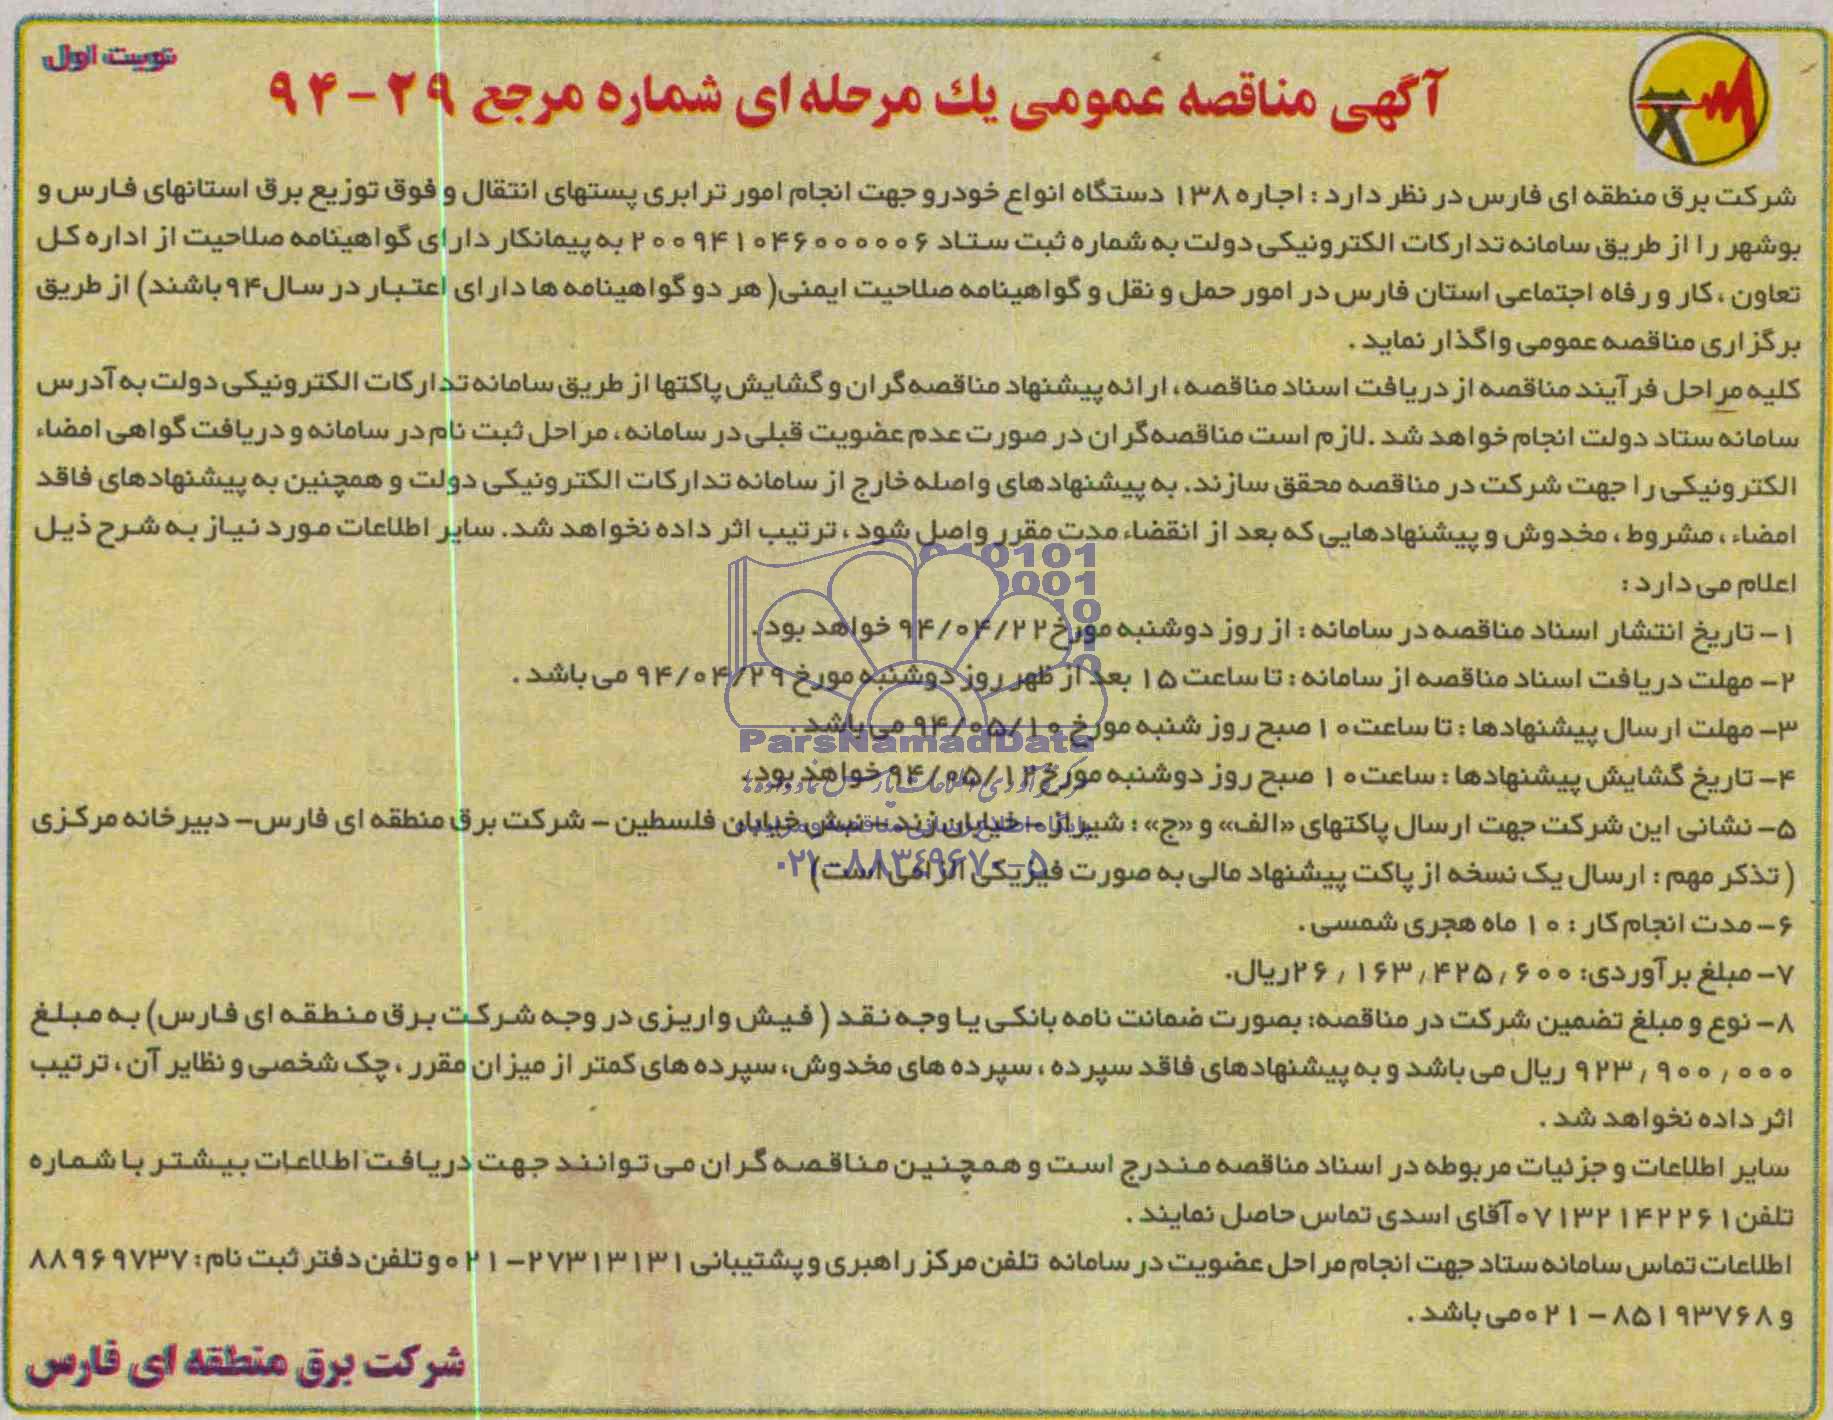 نوبت اول
آگهی مناقصه عمومی یك مرحله ای شماره مرجع ۲۹-۹۴
شرکت برق منطقه ای فارس در نظر دارد : اجاره ۱۳۸ دستگاه انواع خودرو جهت انجام امور ترابری پستهای انتقال و فوق توزیع برق استانهای فارس و
بوشهر را از طریق سامانه تدارکات الکترونیکی دولت به شماره ثبت ستاد ۲۰۰۹۴۱۰۴۶۰۰۰۰۰۶ به پیمانکار دارای گواهینامه صلاحیت از اداره کل
تعاون ، کار و رفاه اجتماعی استان فارس در امور حمل و نقل و گواهینامه صلاحیت ایمنی( هر دو گواهینامه ها دارای اعتبار در سال۹۴باشند) از طریق
برگزاری مناقصه عمومی واگذار نماید .
کلیه مراحل فرآیند مناقصه از دریافت اسناد مناقصه ، ارائه پیشنهاد مناقصه‌گران و گشایش پاکتها از طریق سامانه تدارکات الکترونیکی دولت به آدرس
سامانه ستاد دولت انجام خواهد شد .لازم است مناقصه‌گران در صورت عدم عضویت قبلی در سامانه ، مراحل ثبت نام در سامانه و دریافت گواهی امضاء
الکترونیکی را جهت شرکت در مناقصه محقق سازند. به پیشنهادهای واصله خارج از سامانه تدارکات الکترونیکی دولت و همچنین به پیشنهادهای فاقد
امضاء ، مشروط ، مخدوش و پیشنهادهایی که بعد از انقضاء مدت مقرر واصل شود ، ترتیب اثر داده نخواهد شد. سایر اطلاعات مورد نیاز به شرح ذیل
اعلام می دارد :
۱- تاریخ انتشار اسناد مناقصه در سامانه : از روز دوشنبه مورخ ۹۴/۰۴/۲۲ خواهد بود .
۲- مهلت دریافت اسناد مناقصه از سامانه : تا ساعت ۱۵ بعد از ظهر روز دوشنبه مورخ ۹۴/۰۴/۲۹ می باشد .
۳- مهلت ارسال پیشنهادها : تا ساعت ۱۰ صبح روز شنبه مورخ ۹۴/۰۵/۱۰ می باشد .
ParsNamadData
۴- تاریخ گشایش پیشنهادها : ساعت ۱۰ صبح روز دوشنبه مورخ ۹۴/۰۵/۱۲ خواهد بود .
۵- نشانی این شرکت جهت ارسال پاکتهای «الف» و «ج» : شیراز - خیابان زند - نبش خیابان فلسطین - شرکت برق منطقه ای فارس- دبیرخانه مرکزی
( تذکر مهم : ارسال یک نسخه از پاکت پیشنهاد مالی به صورت فیزیکی الزامی است)
۰۲۱-۸۸۳۴۹۶۷۰-۵
۶- مدت انجام کار : ۱۰ ماه هجری شمسی .
۷- مبلغ برآوردی: ۲۶٫۱۶۳٫۴۲۵٫۶۰۰ریال.
۸- نوع و مبلغ تضمین شرکت در مناقصه: بصورت ضمانت نامه بانکی یا وجه نقد ( فیش واریزی در وجه شرکت برق منطقه ای فارس) به مبلغ
۹۲۳٫۹۰۰٫۰۰۰ ریال می باشد و به پیشنهادهای فاقد سپرده ، سپرده های مخدوش، سپرده های کمتر از میزان مقرر ، چک شخصی و نظایر آن ، ترتیب
اثر داده نخواهد شد .
سایر اطلاعات و جزئیات مربوطه در اسناد مناقصه مندرج است و همچنین مناقصه گران می توانند جهت دریافت اطلاعات بیشتر با شماره
تلفن۰۷۱۳۲۱۴۲۲۶۱آقای اسدی تماس حاصل نمایند .
اطلاعات تماس سامانه ستاد جهت انجام مراحل عضویت در سامانه تلفن مرکز راهبری و پشتیبانی ۲۷۳۱۳۱۳۱-۰۲۱و تلفن دفتر ثبت نام : ۸۸۹۶۹۷۳۷
و ۸۵۱۹۳۷۶۸-۰۲۱می باشد .
شرکت برق منطقه ای فارس